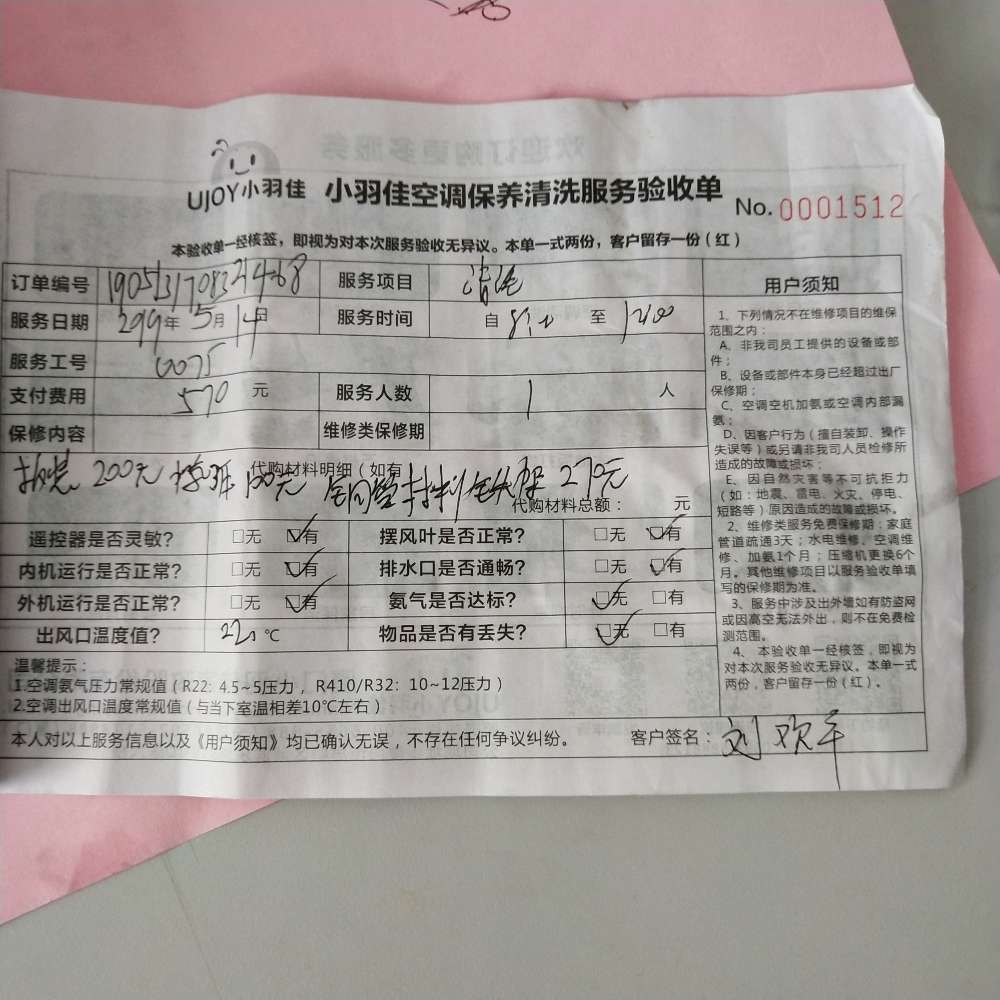 UJOY小羽佳 小羽佳空调保养清洗服务验收单 No. 0001512
本验收单一经核签，即视为对本次服务验收无异议。本单一式两份，客户留存一份（红）
订单编号 服务项目
服务日期 年 5月14日 服务时间 自 至
服务工号 0075
支付费用 570 元 服务人数 1 人
保修内容 维修类保修期
代购材料明细（如有
200元 270元
代购材料总额： 元
遥控器是否灵敏? □无 ☑有 摆风叶是否正常? □无 ☑有
内机运行是否正常? □无 ☑有 排水口是否通畅? □无 ☑有
外机运行是否正常? □无 ☑有 氨气是否达标? ☑无 □有
出风口温度值? ℃ 物品是否有丢失? ☑无 □有
温馨提示：
1.空调氨气压力常规值（R22: 4.5~5压力， R410/R32: 10~12压力）
2.空调出风口温度常规值（与当下室温相差10℃左右）
本人对以上服务信息以及《用户须知》均已确认无误，不存在任何争议纠纷。 客户签名：刘欢平
用户须知
1、下列情况不在维修项目的维保
范围之内：
A、非我司员工提供的设备或部
件；
B、设备或部件本身已经超过出厂
保修期；
C、空调空机加氨或空调内部漏
氨；
D、因客户行为（擅自装卸、操作
失误等）或另请非我司人员检修所
造成的故障或损坏；
E、因自然灾害等不可抗拒力
（如：地震、雷电、火灾、停电、
短路等）原因造成的故障或损坏。
2、维修类服务免费保修期：家庭
管道疏通3天；水电维修、空调维
修、加氨1个月；压缩机更换6个
月。其他维修项目以服务验收单填
写的保修期为准。
3、服务中涉及出外墙如有防盗网
或因高空无法外出，则不在免费检
测范围。
4、本验收单一经核签，即视为
对本次服务验收无异议。本单一式
两份，客户留存一份（红）。